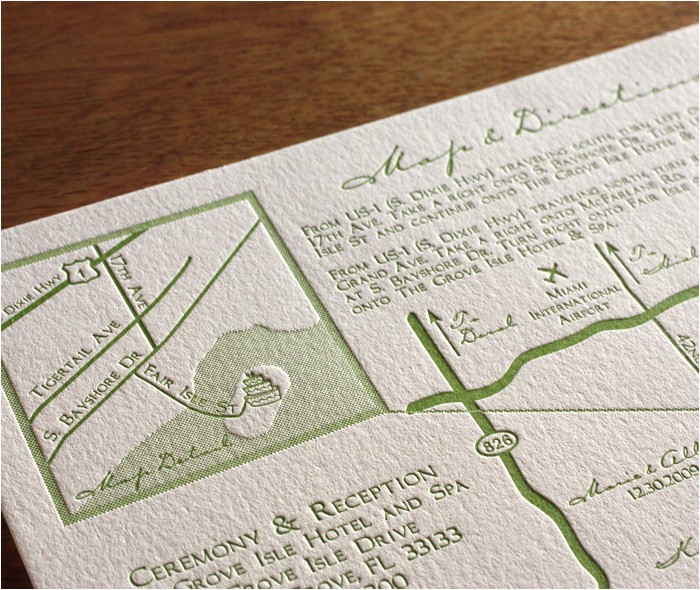 Map & Directions
From US-1 (S. Dixie Hwy) traveling south, turn left
17th Ave. Take a right onto S. Bayshore Dr. Turn
Isle St and continue onto The Grove Isle Hotel &
From US-1 (S. Dixie Hwy) traveling north, turn
Grand Ave. Take a right onto McFarlane Rd
at S. Bayshore Dr. Turn right onto Fair Isle
onto The Grove Isle Hotel & Spa.
Dixie Hwy
1
17th Ave
Tigertail Ave
S. Bayshore Dr
Fair Isle St
Map Detail
To
Doral
Miami
International
Airport
To
826
12.30.2009
K
Ceremony & Reception
Grove Isle Hotel and Spa
Grove Isle Drive
Grove, FL 33133